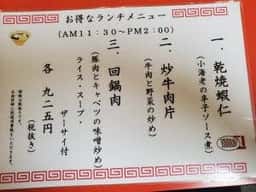 お得なランチメニュー
(AM11:30～PM2:00)
一、乾焼蝦仁
(小海老の辛子ソース煮)
二、炒牛肉片
(牛肉と野菜の炒め)
三、回鍋肉
(豚肉とキャベツの味噌炒め)
ライス・スープ・
ザーサイ付
各 九二五円
(税抜き)